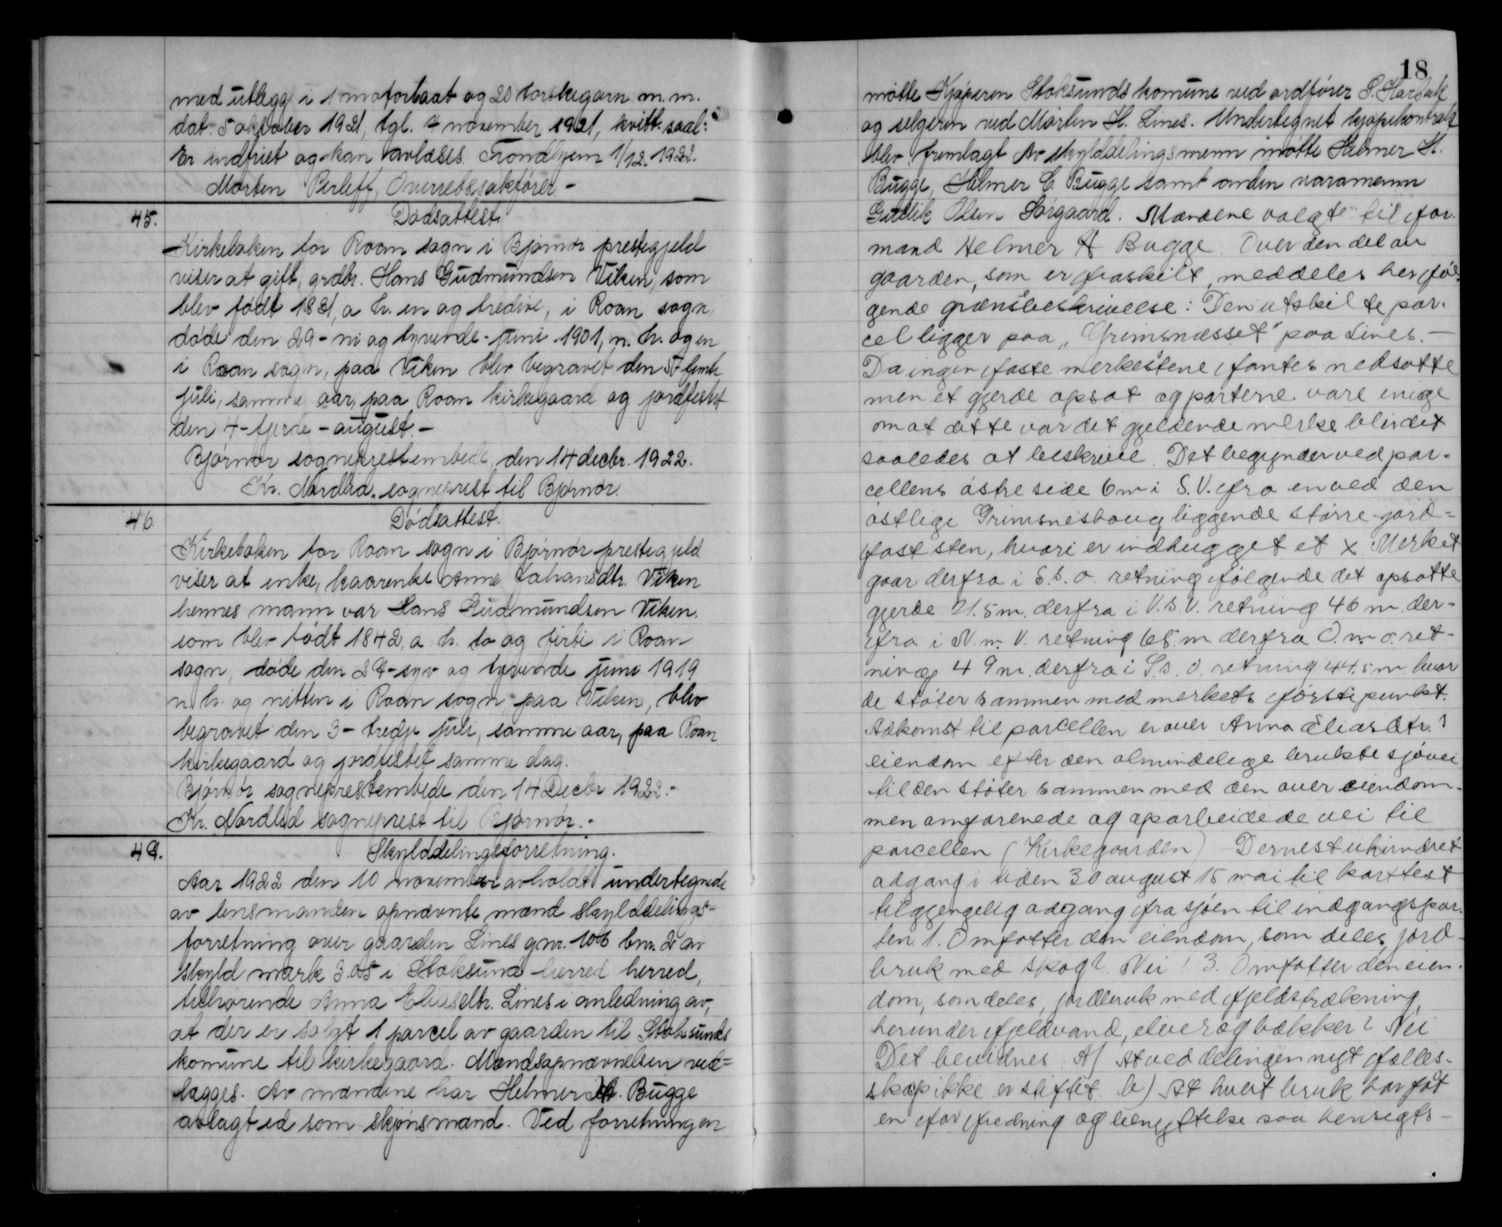 med utlegg i 1 motorbaat og 20 torskegarn m.m.
dat. 5 oktober 1921, tgl. 4 november 1921, kvitt. saal:
Er indfriet og kan avlæses. Trondhjem 1/12. 1922.
Morten Perleff, Overretssakfører -
45. Dødsattest
Kirkeboken for Roan sogn i Bjørnør prestegjeld
viser at gift, grdbr. Hans Gudmundsen Viken, som
blev født 1831, a. h. en og tredive, i Roan sogn,
døde den 29 - ni og tyvende - juni 1901, n. h. og en
i Roan sogn, paa Viken blev begravet den 5 - femte
juli, samme aar, paa Roan kirkegaard og jordfestet
den 4 - fjerde - august. -
Bjørnør sogneprestembede, den 14 decbr. 1922.
Kr. Nordlid, sogneprest til Bjørnør.
46 Dødsattest.
Kirkeboken for Roan sogn i Bjørnør prestegjeld
viser at enke, kaarenke Anne Johansdtr. Viken
hennes mann var Hans Gudmundsen Viken.
som blev født 1842, a. h. to og firti i Roan
sogn, døde den 27 - syv og tyvende juni 1919
n. h. og nitten i Roan sogn paa Viken, blev
begravet den 3 - tredje juli, samme aar, paa Roan
kirkegaard og jordfestet samme dag.
Bjørnør sogneprestembede den 14 Decbr 1922. -
Kr. Nordlid sogneprest til Bjørnør. -
47. Skylddelingsforretning.
Aar 1922 den 10 november avholdt undertegnede
av lensmanden opnævnte mænd skylddelings=
forretning over gaarden Lines gnr. 106 bnr. 2 av
skyld mark 3.05 i Stoksund herred herred,
tilhørende Anna Eliasdtr. Lines i anledning av,
at der er solgt 1 parcel av gaarden til Stoksunds
komune til kirkegaard. Mandsopnævnelsen ved=
lægges. Av mændene har Helmer H. Bugge
avlagt ed som skjønsmand. Ved forretningen
18
møtte Kjøperen Stoksunds komune ved ordfører
og selgeren ved Morten H. Lines. Undertegnet kjøpekontrakt
blev fremlagt Av skylddelingsmenn møtte Helmer H.
Bugge, Helmer C. Bugge samt anden varamann
Gutlik Olsen Sørgaard. Mændene valgte til for-
mand Helmer H Bugge Over den del av
gaarden, som er fraskilt, meddeles her føl-
gende grænsbeskrivelse: Den utskilte par-
cel ligger paa "Grimsnæsset" paa Lines. -
Da ingen faste merkestene fantes nedsatte
men et gjerde opsat og parterne vare enige
om at dette var det gjeldende merke blev det
saaledes at beskrive. Det begynder ved par-
cellens østre side 6 m i S.V. fra en ved den
østlige Grimsneshaug liggende større jord=
fast sten, hvori er indhugget et x Merket
gaar derfra i S.s.o. retning følgende det opsatte
gjerde 21.5 m. derfra i V.s.V. retning 46 m. der-
fra i N.n.V. retning 65 m derfra O.n.o ret-
ning 49 m. derfra i S.s.o. retning 44.5 m hvor
de støter sammen med merkets første punkt.
Adkomst til parcellen er over Anna Eliasdtr.s
eiendom efter den almindelige brukte sjøvei
til den støter sammen med den over eiendom-
men omfarende og oparbeidede vei til
parcellen (Kirkegaarden) Dernest uhindret
adgang i tiden 30 august 15 mai til kortest
tilgjengelig adgang fra sjøen til indgangspor-
ten. 1. Omfatter den eiendom, som deles, jord-
bruk med skog? Nei! 3. Omfatter den eien-
dom, som deles, jordbruk med fjeldstrækning,
herunder fjeldvand, elver og bækker? Nei
Det bevidnes A) At ved delingen nyt fælles-
skap ikke er stiftet. b) At hvert bruk har fåt
en for fredning og benyttelse saa hensigts-